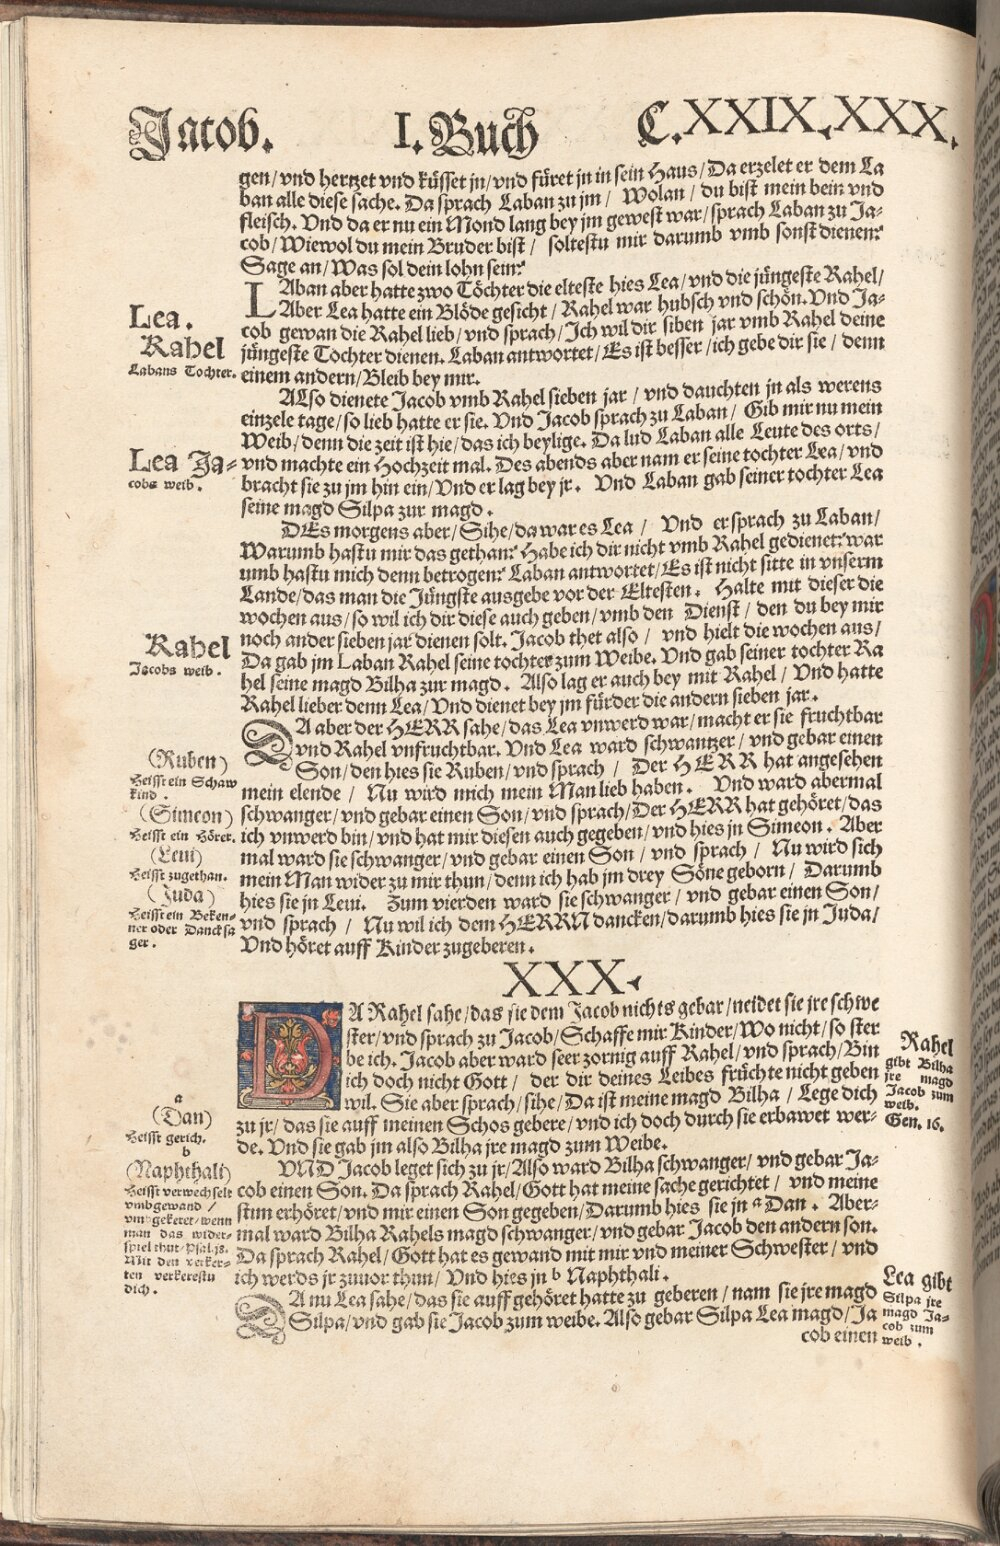 Jacob. I. Buch C. XXIX. XXX.
gen/vnd hertzet vnd küsset jn/vnd füret jn in sein Haus/Da erzelet er dem La
ban alle diese sache. Da sprach Laban zu jm/ Wolan/du bist mein bein vnd
fleisch. Vnd da er nu ein Mond lang bey jm gewest war/sprach Laban zu Ja-
cob/Wiewol du mein Bruder bist/ soltestu mir darumb vmb sonst dienen?
Sage an/Was sol dein lohn sein?
Lea.
Rahel
Labans Tochter.
LAban aber hatte zwo Töchter die elteste hies Lea/vnd die jüngeste Rahel/
Aber Lea hatte ein Blöde gesicht/Rahel war hubsch vnd schön. Vnd Ja-
cob gewan die Rahel lieb/vnd sprach/Ich wil dir siben jar vmb Rahel deine
jüngeste Tochter dienen. Laban antwortet/Es ist besser/ich gebe dir sie/denn
einem andern/Bleib bey mir.
ALso dienete Jacob vmb Rahel sieben jar/vnd dauchten jn als werens
einzele tage/so lieb hatte er sie. Vnd Jacob sprach zu Laban/Gib mir nu mein
Weib/denn die zeit ist hie/das ich beylige. Da lud Laban alle Leute des orts/
Lea Ja-
cobs weib.
vnd machte ein Hochzeit mal. Des abends aber nam er seine tochter Lea/vnd
bracht sie zu jm hin ein/Vnd er lag bey jr. Vnd Laban gab seiner tochter Lea
seine magd Silpa zur magd.
DEs morgens aber/Sihe/da war es Lea/ Vnd er sprach zu Laban/
Warumb hastu mir das gethan? Habe ich dir nicht vmb Rahel gedienet? war
umb hastu mich denn betrogen? Laban antwortet/Es ist nicht sitte in vnserm
Lande/das man die Jüngste ausgebe vor der Eltesten. Halte mit dieser die
wochen aus/so wil ich dir diese auch geben/vmb den Dienst/den du bey mir
Rahel
Jacobs weib.
noch ander sieben jar dienen solt. Jacob thet also/ vnd hielt die wochen aus/
Da gab jm Laban Rahel seine tochter zum Weibe. Vnd gab seiner tochter Ra
hel seine magd Bilha zur magd. Also lag er auch bey mit Rahel/Vnd hatte
Rahel lieber denn Lea/Vnd dienet bey jm fürder die andern sieben jar.
DA aber der HERR sahe/das Lea vnwerd war/macht er sie fruchtbar
vnd Rahel vnfruchtbar. Vnd Lea ward schwantzer/vnd gebar einen
Son/den hies sie Ruben/vnd sprach/ Der HERR hat angesehen
mein elende/ Nu wird mich mein Man lieb haben. Vnd ward abermal
schwanger/vnd gebar einen Son/vnd sprach/Der HERR hat gehöret/das
ich vnwerd bin/vnd hat mir diesen auch gegeben/vnd hies jn Simeon. Aber
mal ward sie schwanger/vnd gebar einen Son/vnd sprach/ Nu wird sich
mein Man wider zu mir thun/denn ich hab jm drey Söne geborn/ Darumb
hies sie jn Leui. Zum vierden ward sie schwanger/ vnd gebar einen Son/
vnd sprach/ Nu wil ich dem HERRN dancken/darumb hies sie jn Juda/
Vnd höret auff Kinder zugeberen.
(Ruben)
Heisst ein Schaw
kind.
(Simeon)
Heisst ein Hörer.
(Leui)
Heisst zugethan.
(Juda)
Heisst ein Beken-
ner oder Dancksa
ger.
XXX.
DA Rahel sahe/das sie dem Jacob nichts gebar/neidet sie jre schwe
ster/vnd sprach zu Jacob/Schaffe mir Kinder/Wo nicht/so ster
be ich. Jacob aber ward seer zornig auff Rahel/vnd sprach/Bin
ich doch nicht Gott/ der dir deines Leibes früchte nicht geben
wil. Sie aber sprach/sihe/Da ist meine magd Bilha/Lege dich
zu jr/das sie auff meinen Schos gebere/vnd ich doch durch sie erbawet wer-
de. Vnd sie gab jm also Bilha jre magd zum Weibe.
Rahel
gibt Bilha
jre magd
Jacob zum
weib.
Gen. 16.
VND Jacob leget sich zu jr/Also ward Bilha schwanger/vnd gebar Ja-
cob einen Son. Da sprach Rahel/Gott hat meine sache gerichtet/vnd meine
stim erhöret/vnd mir einen Son gegeben/Darumb hies sie jn a Dan. Aber-
mal ward Bilha Rahels magd schwanger/vnd gebar Jacob den andern son.
Da sprach Rahel/Gott hat es gewand mit mir vnd meiner Schwester/vnd
ich werds jr zuuor thun/Vnd hies jn b Naphthali.
a
(Dan)
Heisst gericht.
b
(Naphthali)
Heisst verwechselt
vmbgewand/
vmbgekeret/wenn
man das wider-
spiel thut/Psal. 18.
Mit den verker-
ten verkerestu
dich.
DA nu Lea sahe/das sie auff gehöret hatte zu geberen/nam sie jre magd
Silpa/vnd gab sie Jacob zum weibe. Also gebar Silpa Lea magd/Ja
cob einen
Lea gibt
Silpa jre
magd Ja-
cob zum
weib.